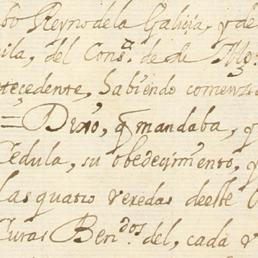 Reyno de la Galicia, y de
del Cons.º de de
tecedente, haviendo
= Dixo, q mandaba, y
Cedula, su obedecimiento, y
Las quatro veredas deeste
Curas Ben.dos del, cada